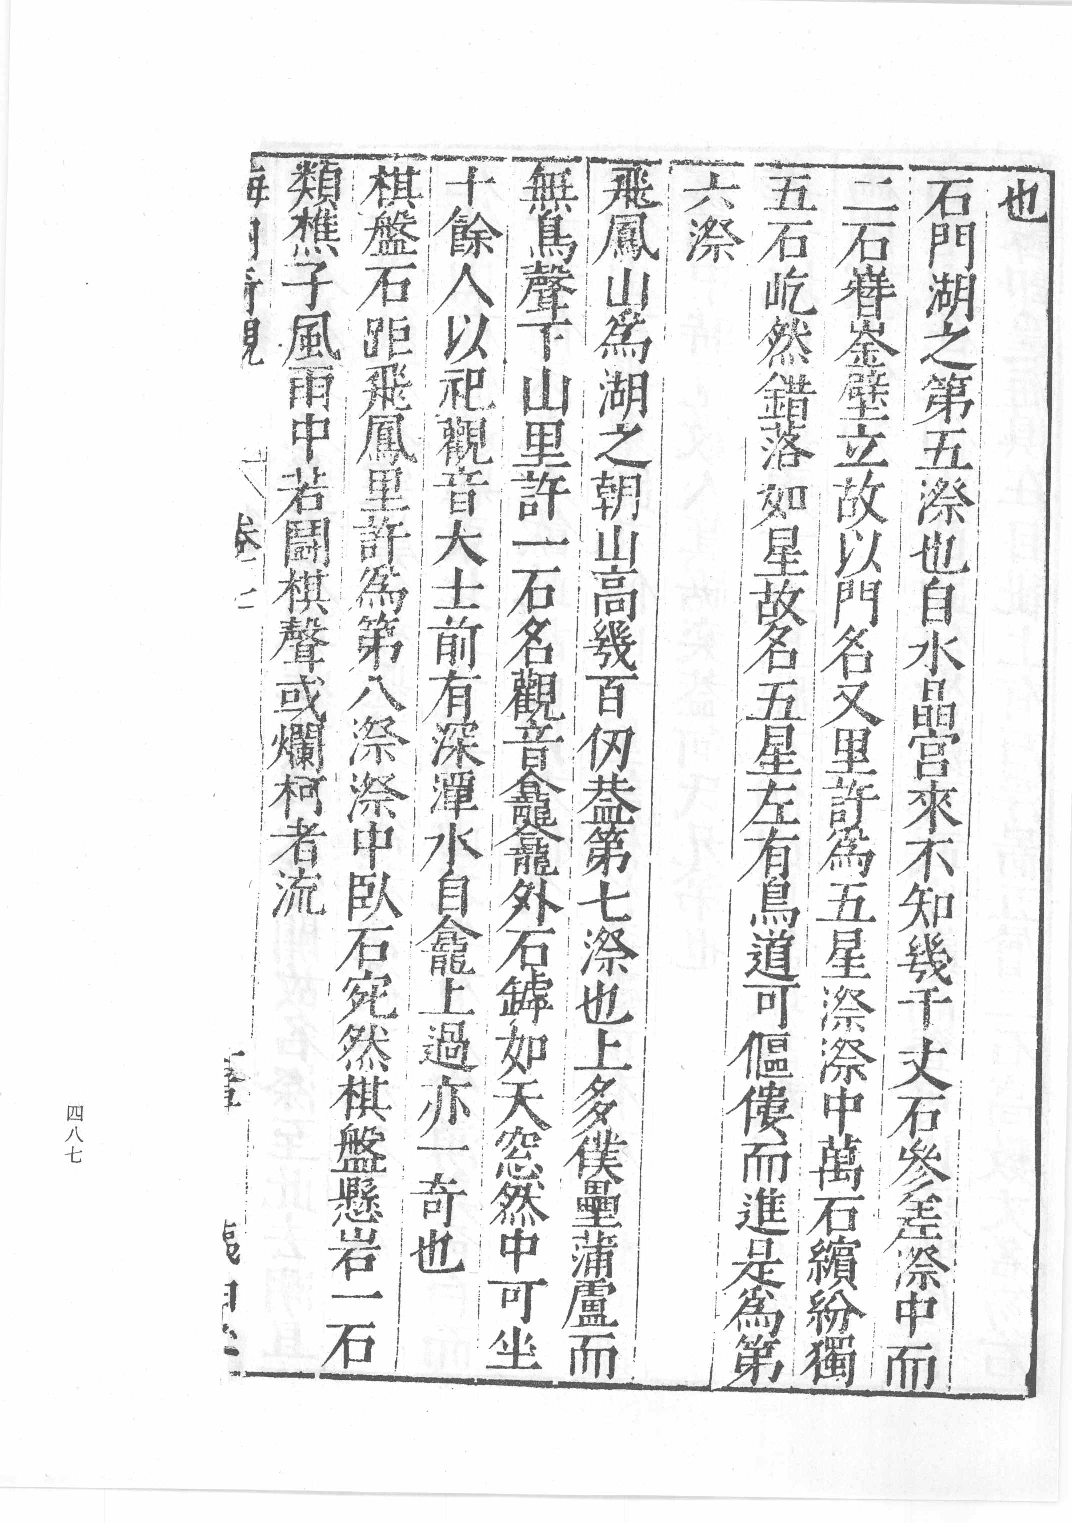 也
石門湖之第五漈也自水晶宮來不知幾千丈石參差漈中而
二石嶜崟壁立故以門名又里許為五星漈漈中萬石繽紛獨
五石屹然錯落如星故名五星左有鳥道可傴僂而進是為第
六漈
飛鳳山為湖之朝山高幾百仞葢第七漈也上多僕壘蒲盧而
無鳥聲下山里許一石名觀音龕龕外石罅如天窓然中可坐
十餘人以祀觀音大士前有深潭水自龕上過亦一奇也
棋盤石距飛鳳里許為第八漈漈中臥石宛然棋盤懸岩一石
類樵子風雨中若鬪棋聲或爛柯者流
海内奇觀
卷
四八七